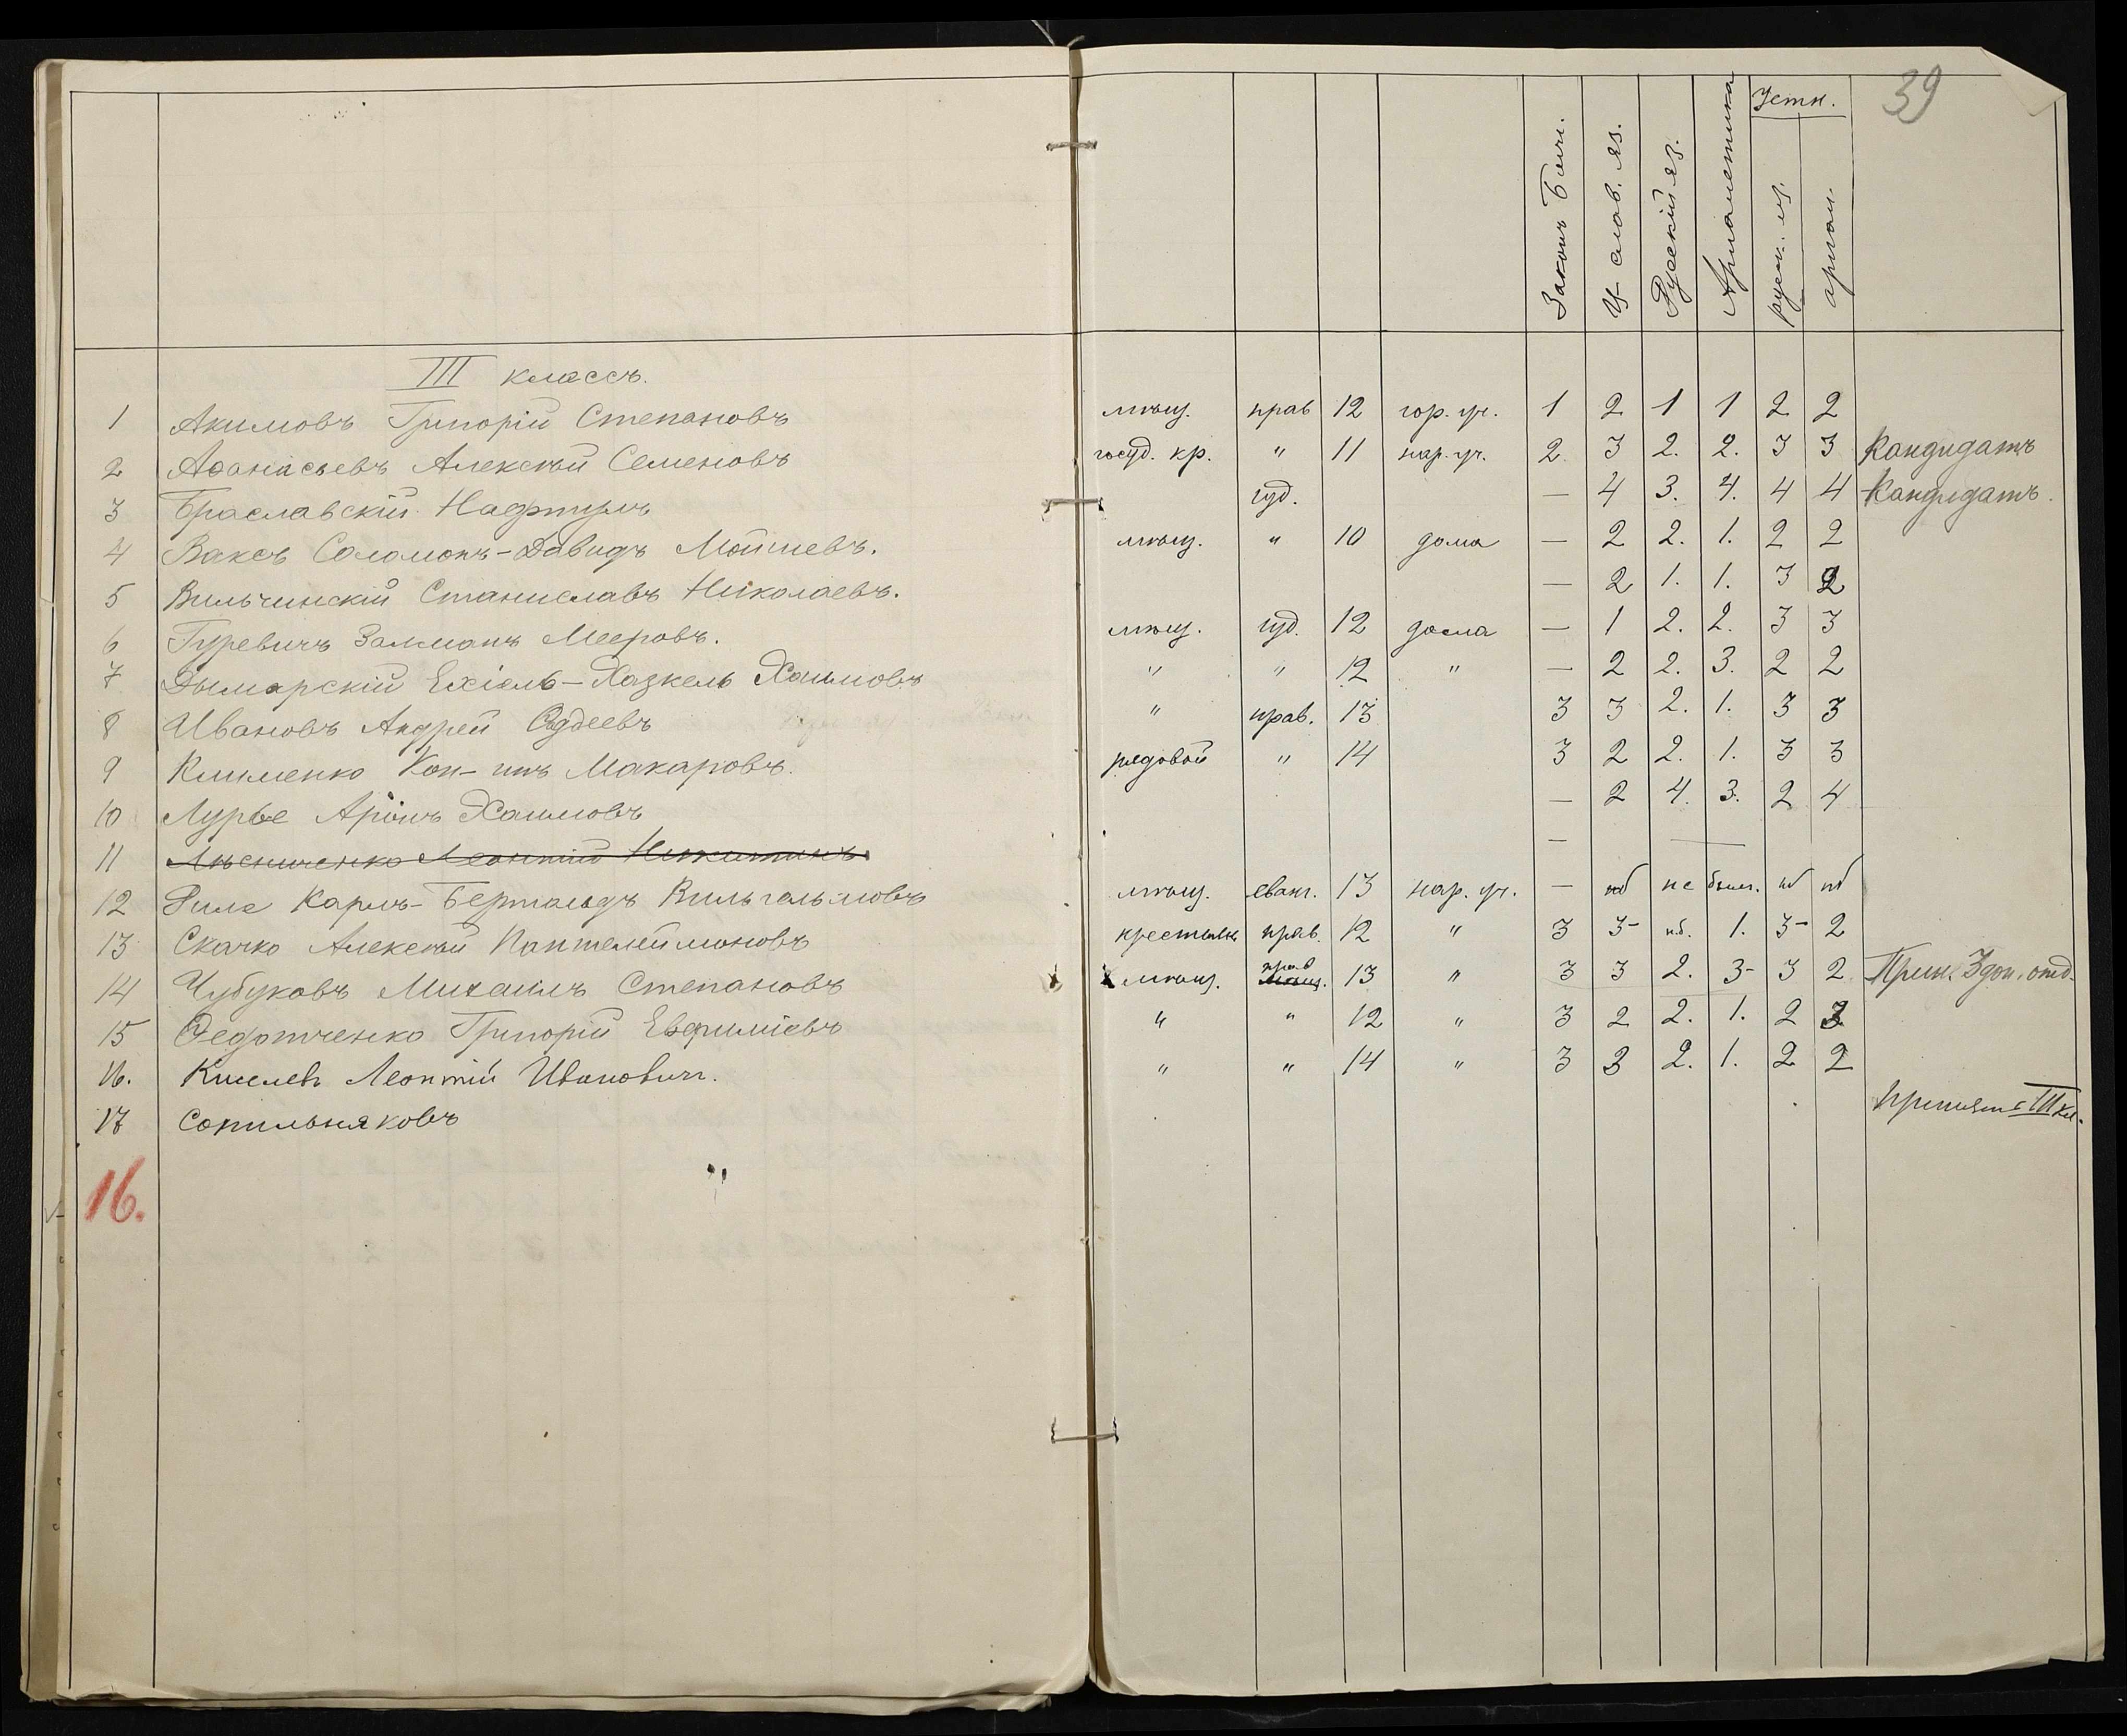 39
Законъ Бож. Ц-слав. яз. Русскій яз. Ариѳметика Устн. русск. яз. ариѳм.
III классъ.
1 Акимовъ Григорій Степановъ мѣщ. прав 12 гор. уч. 1 2 1 1 2 2
2 Аѳанасьевъ Алексѣй Семеновъ госуд. кр. " 11 нар. уч. 2 3 2. 2. 3 3 Кандидатъ
3 Браславскій Нафтулъ іуд. — 4 3. 4. 4 4 Кандидатъ.
4 Ваксъ Соломонъ-Давидъ Мойшевъ. мѣщ. " 10 дома — 2 2. 1. 2 2
5 Вильчинскій Станиславъ Николаевъ. — 2 1. 1. 3 2
6 Гуревичъ Залманъ Мееровъ. мѣщ. іуд. 12 дома — 1 2. 2. 3 3
7 Дымарскій Ехіель-Хазкель Хаимовъ " " 12 " — 2 2. 3. 2 2
8 Ивановъ Андрей Ѳадеевъ " прав. 13 3 3 2. 1. 3 3
9 Клименко Кон-инъ Макаровъ. рядовой " 14 3 2 2. 1. 3 3
10 Лурье Аронъ Хаимовъ — 2 4. 3. 2 4
11 Лѣсниченко Леонтій Никитинъ —
12 Риле Карлъ-Бертольдъ Вильгельмовъ мѣщ. еванг. 13 нар. уч. — нб не былъ. нб нб
13 Скачко Алексѣй Пантелеймоновъ крестьян прав. 12 " 3 3- н.б. 1. 3- 2
14 Чубуковъ Михаилъ Степановъ мѣщ. прав 13 " 3 3 2. 3- 3 2 Прин. 3 доп. отд.
15 Ѳедотченко Григорій Евфиміевъ " " 12 " 3 2 2. 1. 2 3
16. Киселевъ Леонтій Ивановичъ. " " 14 " 3 3 2. 1. 2 2
17 Сопильняковъ принятъ III кл.
16.